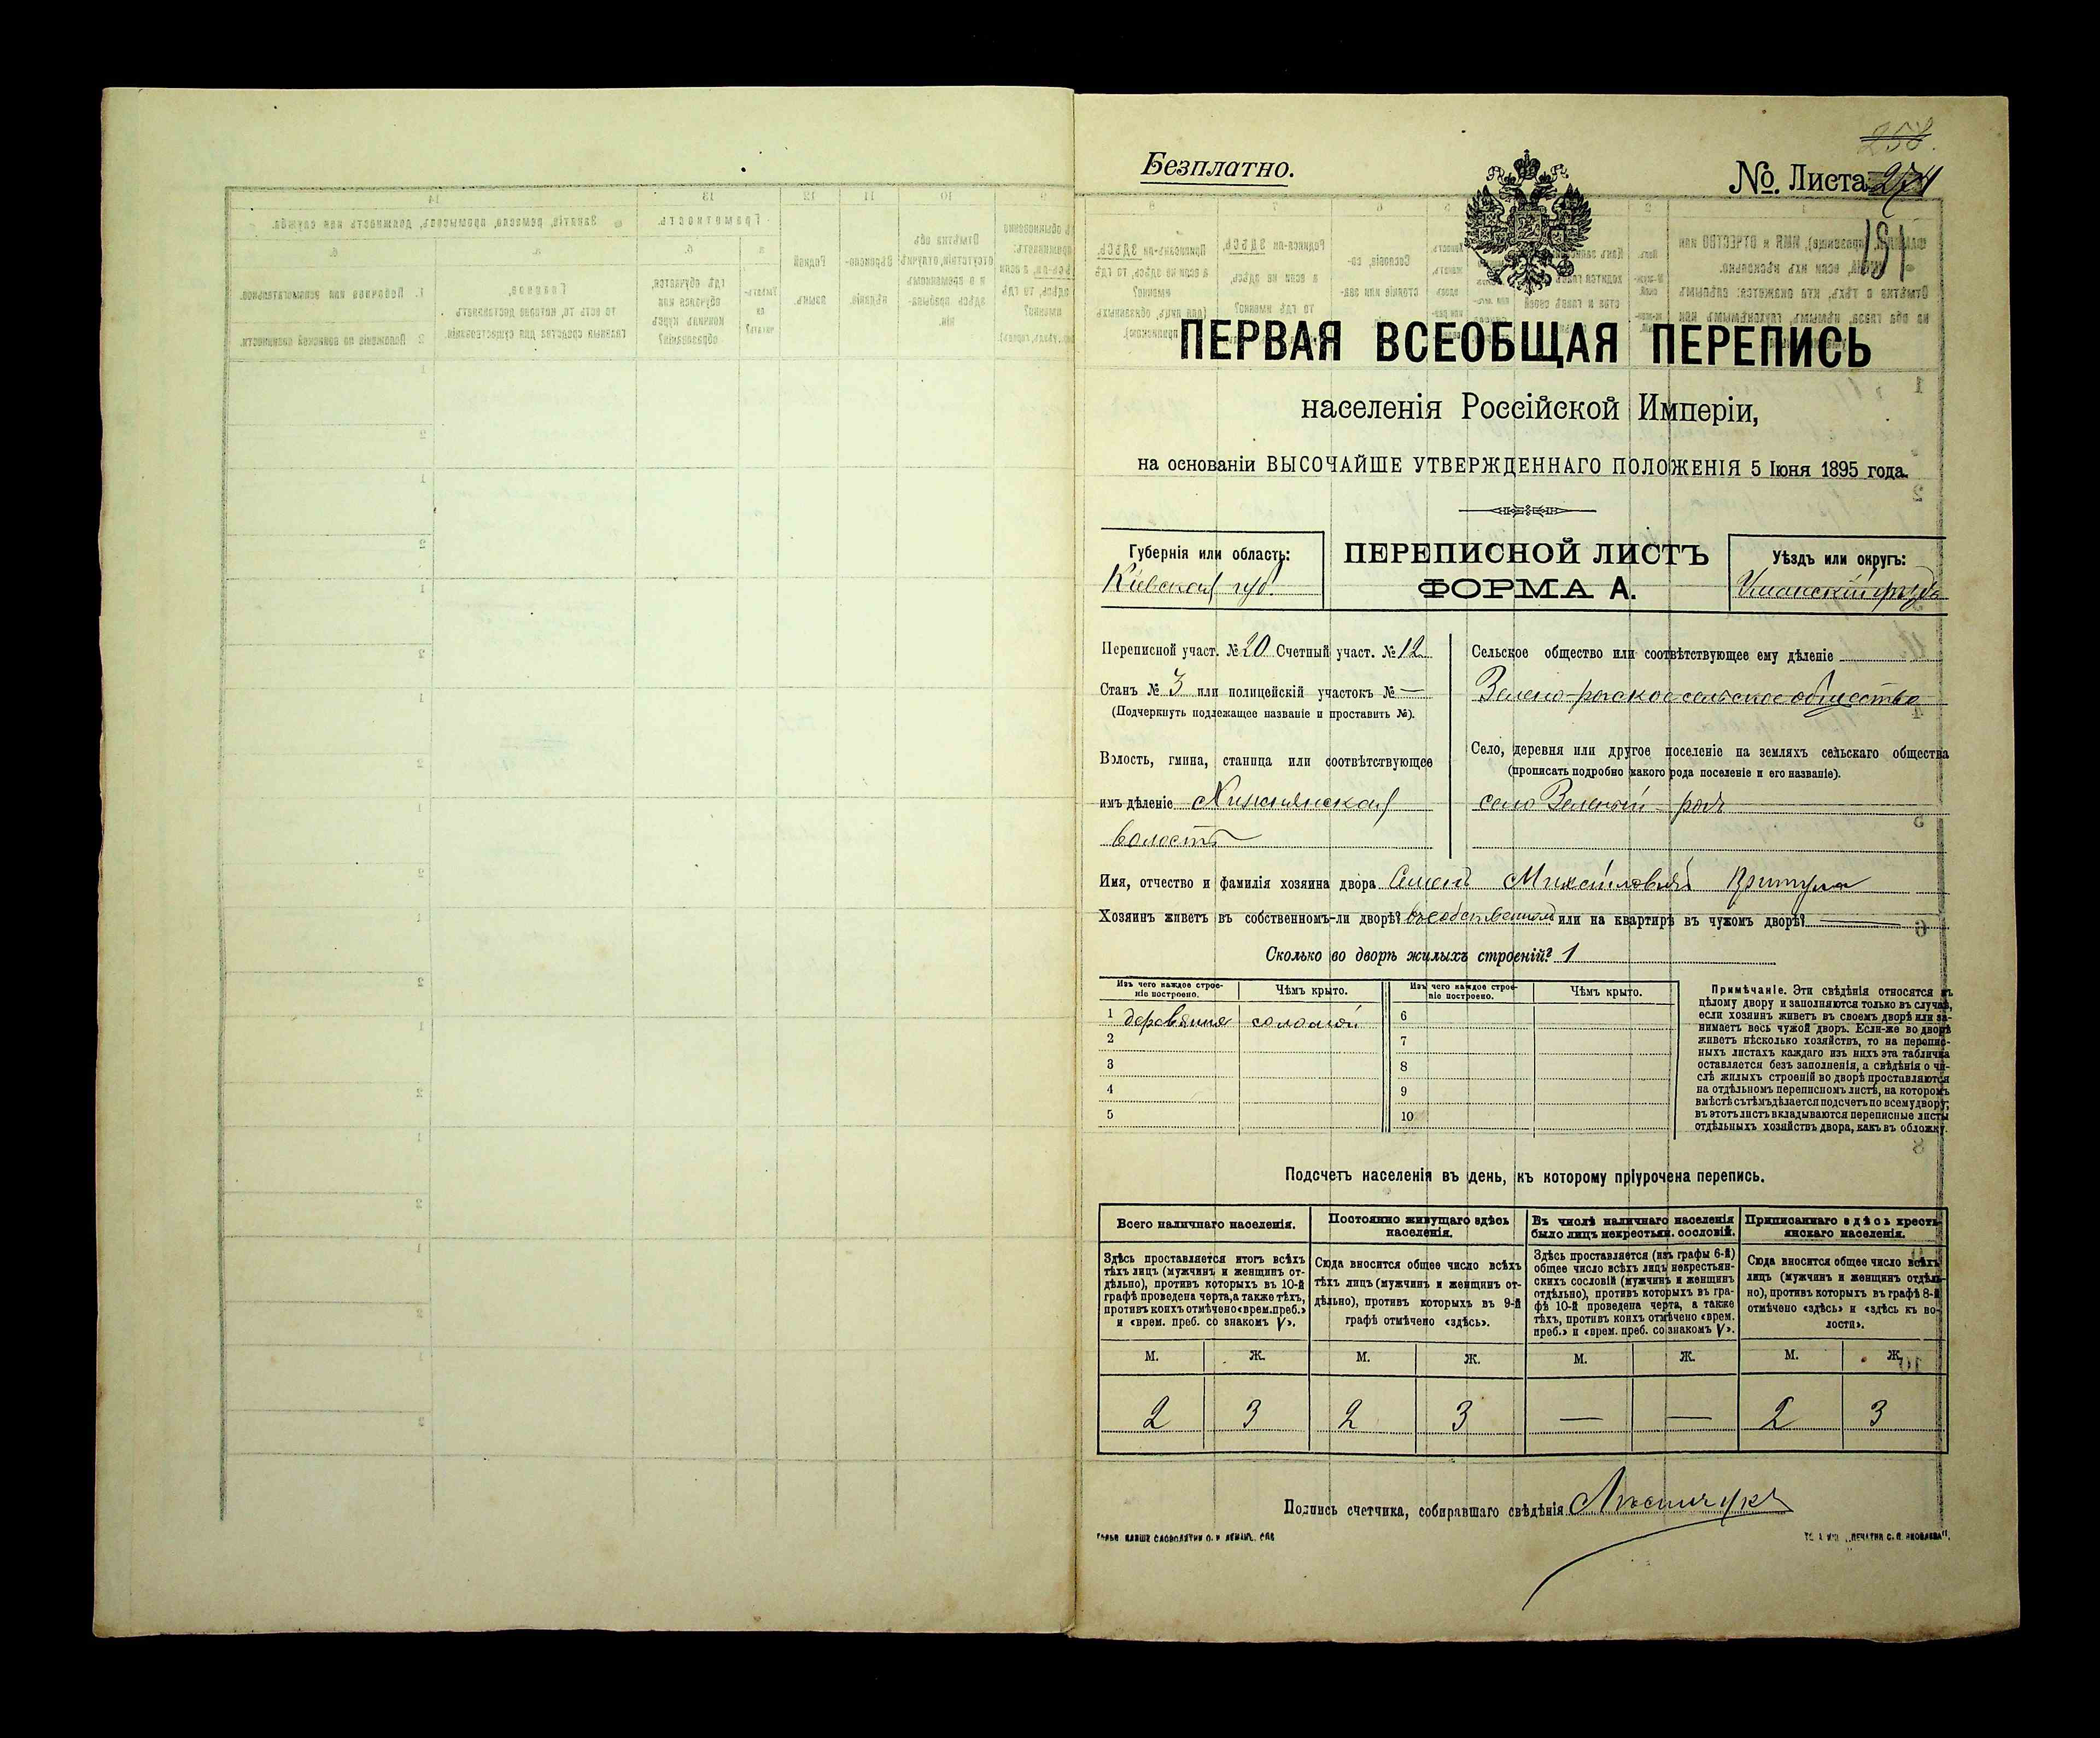 258.
Безплатно.
№. Листа 274
191
ПЕРВАЯ ВСЕОБЩАЯ ПЕРЕПИСЬ
населенія Россійской Имперіи,
на основаніи ВЫСОЧАЙШЕ УТВЕРЖДЕННАГО ПОЛОЖЕНІЯ 5 Іюня 1895 года.
Губернія или область:
Кіевская губ.
ПЕРЕПИСНОЙ ЛИСТЪ
ФОРМА А.
Уѣздъ или округъ:
Уманскій уѣздъ
Переписной участ. № 20 Счетный участ. № 12
Станъ № 3 или полицейскій участокъ № —
(Подчеркнуть подлежащее названіе и проставить №).
Волость, гмина, станица или соотвѣтствующее
имъ дѣленіе
волость
Сельское общество или соотвѣтствующее ему дѣленіе
Зелено-рогское сельское общество
Село, деревня или другое поселеніе на земляхъ сельскаго общества
(прописать подробно какого рода поселеніе и его названіе).
село Зеленый рогъ
Имя, отчество и фамилія хозяина двора Семенъ Михайловичъ
Хозяинъ живетъ въ собственномъ-ли дворѣ? въ собственномъ или на квартирѣ въ чужомъ дворѣ? —
Сколько во дворѣ жилыхъ строеній? 1
Изъ чего каждое строе-
ніе построено.
Чѣмъ крыто.
Изъ чего каждое строе-
ніе построено.
Чѣмъ крыто.
1 деревянное соломой
2
3
4
5
6
7
8
9
10
Примѣчаніе. Эти свѣдѣнія относятся къ
цѣлому двору и заполняются только въ случаѣ,
если хозяинъ живетъ въ своемъ дворѣ или за-
нимаетъ весь чужой дворъ. Если-же во дворѣ
живетъ нѣсколько хозяйствъ, то на перепис-
ныхъ листахъ каждаго изъ нихъ эта табличка
оставляется безъ заполненія, а свѣдѣнія о чи-
слѣ жилыхъ строеній во дворѣ проставляются
на отдѣльномъ переписномъ листѣ, на которомъ
вмѣстѣ съ тѣмъ дѣлается подсчетъ по всему двору;
въ этотъ листъ вкладываются переписные листы
отдѣльныхъ хозяйствъ двора, какъ въ обложку.
Подсчетъ населенія въ день, къ которому пріурочена перепись.
Всего наличнаго населенія.
Здѣсь проставляется итогъ всѣхъ
тѣхъ лицъ (мужчинъ и женщинъ от-
дѣльно), противъ которыхъ въ 10-й
графѣ проведена черта, а также тѣхъ,
противъ коихъ отмѣчено «врем. преб.»
и «врем. преб. со знакомъ V».
Постоянно живущаго здѣсь
населенія.
Сюда вносится общее число всѣхъ
тѣхъ лицъ (мужчинъ и женщинъ от-
дѣльно), противъ которыхъ въ 9-й
графѣ отмѣчено «здѣсь».
Въ числѣ наличнаго населенія
было лицъ некрестьян. сословій.
Здѣсь проставляется (изъ графы 6-й)
общее число всѣхъ лицъ некрестьян-
скихъ сословій (мужчинъ и женщинъ
отдѣльно), противъ которыхъ въ гра-
фѣ 10-й проведена черта, а также
тѣхъ, противъ коихъ отмѣчено «врем.
преб.» и «врем. преб. со знакомъ V».
Приписаннаго здѣсь кресть-
янскаго населенія.
Сюда вносится общее число всѣхъ
лицъ (мужчинъ и женщинъ отдѣль-
но), противъ которыхъ въ графѣ 8-й
отмѣчено «здѣсь» и «здѣсь къ во-
лости».
М. Ж. М. Ж. М. Ж. М. Ж.
2 3 2 3 — — 2 3
Подпись счетчика, собиравшаго свѣдѣнія